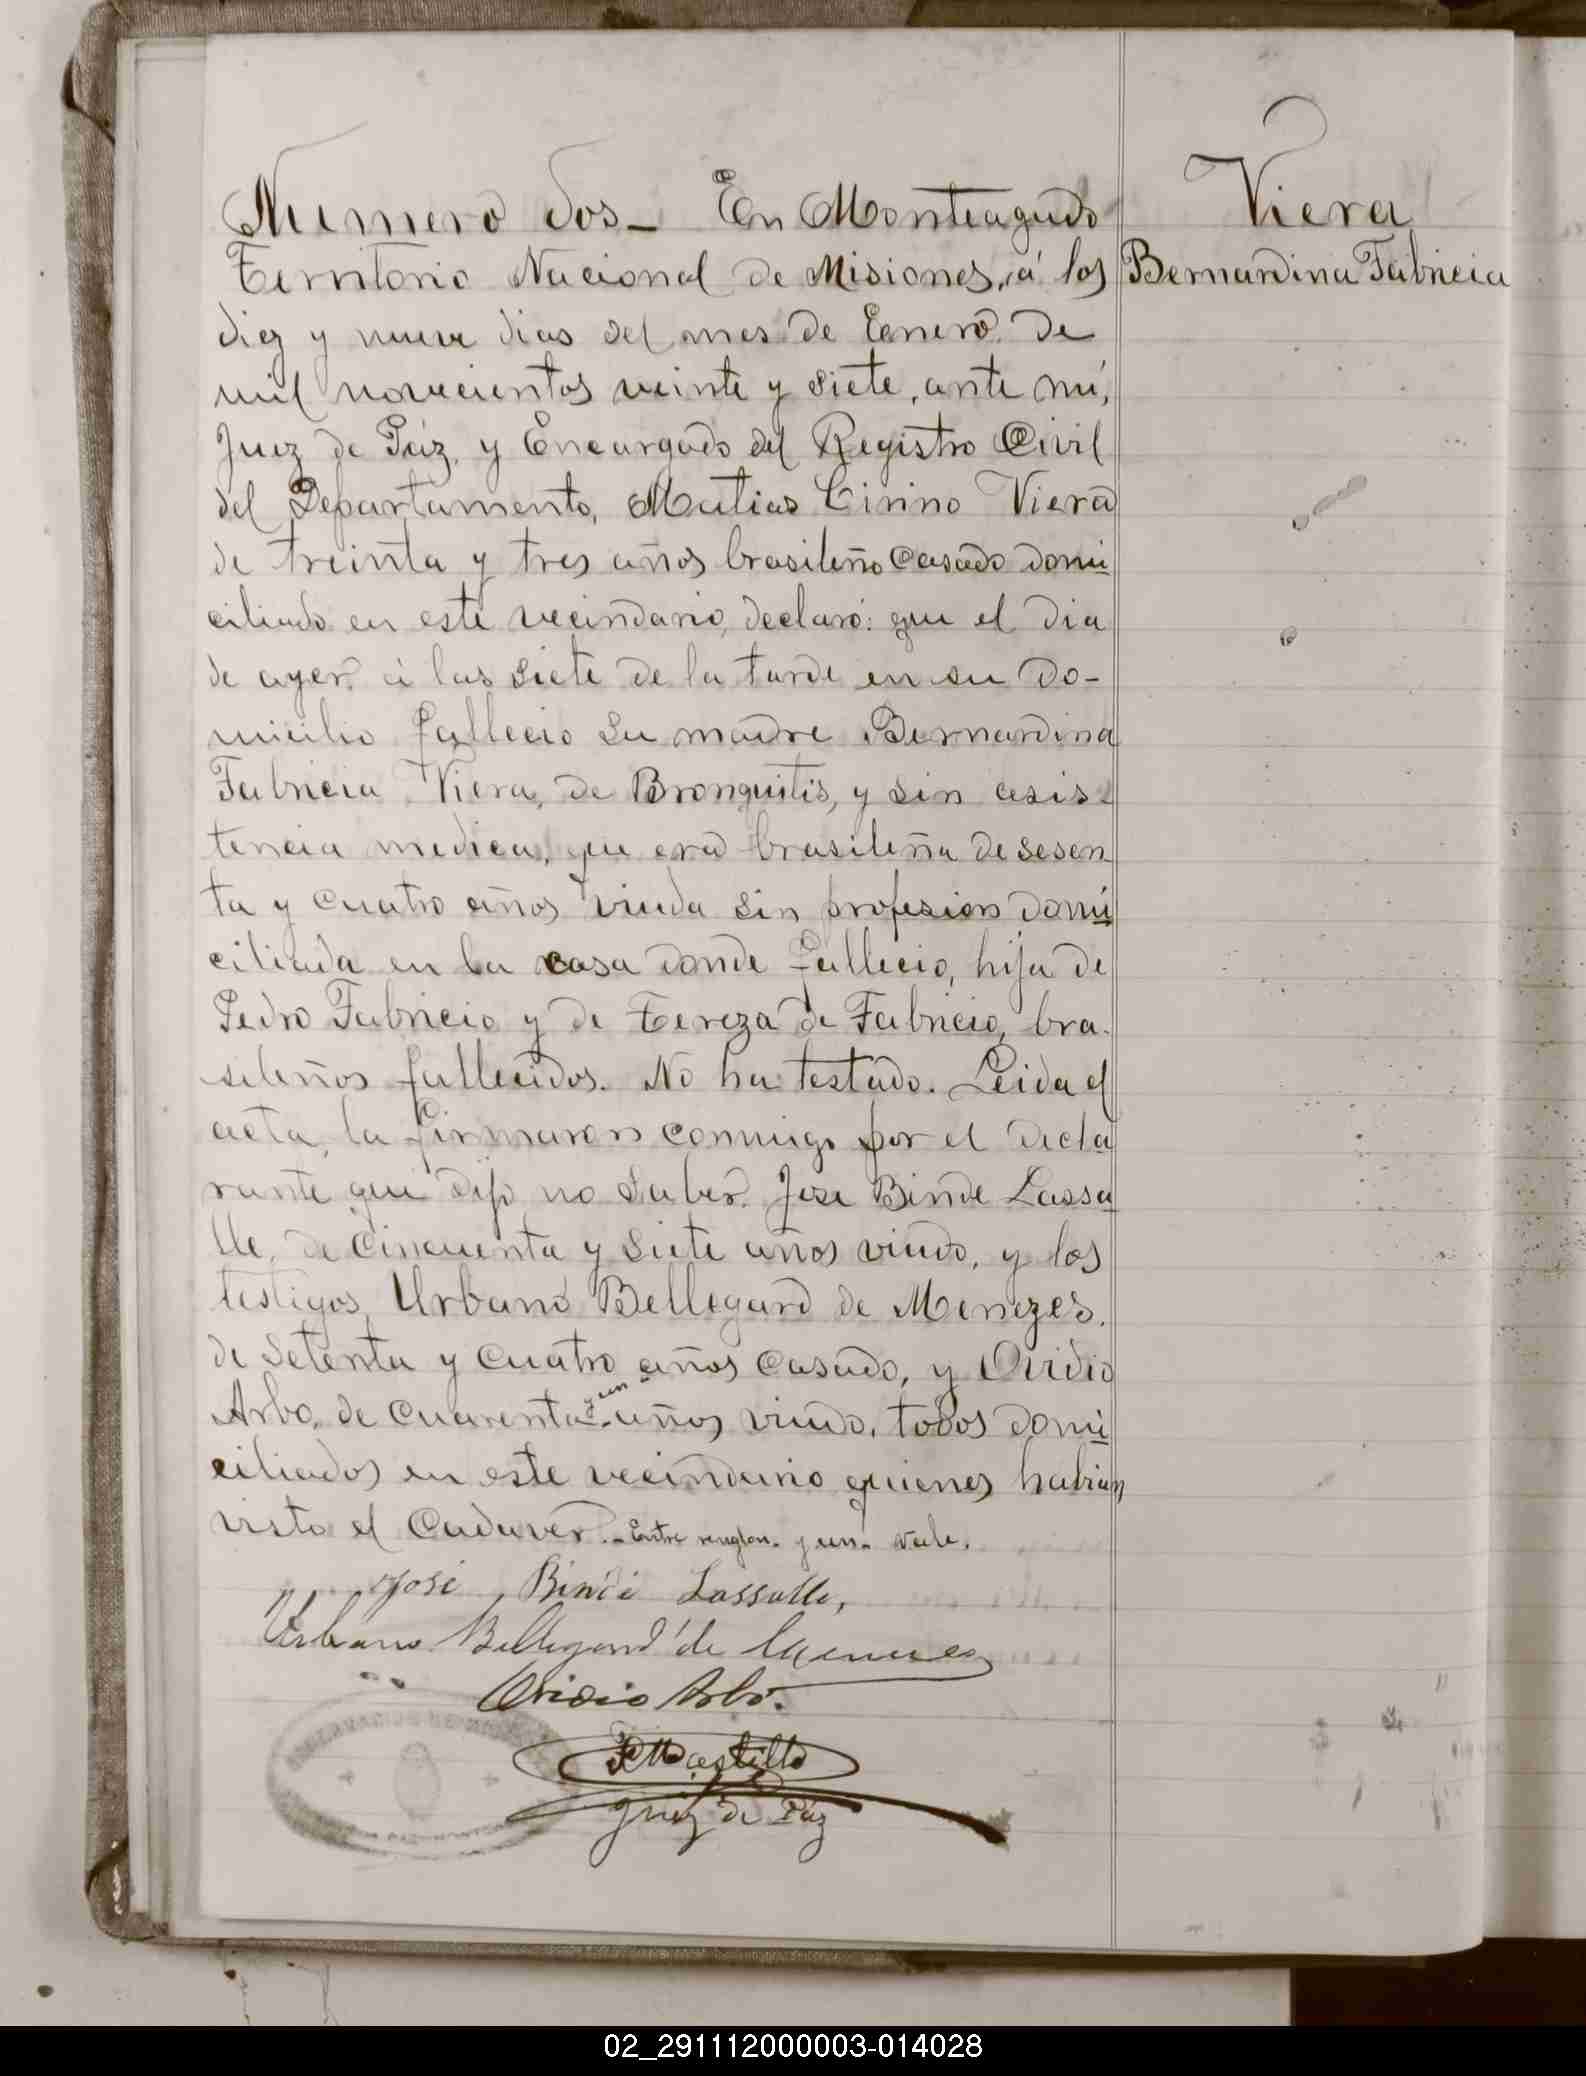 Numero dos_ En Monteagudo
Territorio Nacional de Misiones, á los
diez y nueve dias del mes de Enero de
mil novecientos veinte y siete, ante mí,
Juez de Páz, y Encargado del Registro Civil
del Departamento, Matias Cirino Viera
de treinta y tres años brasileño casado domi
ciliado en este vecindario, declaró: que el dia
de ayer á las siete de la tarde en su do-
micilio fallecio su madre Bernardina
Fabricia Viera, de Bronquitis, y sin asis-
tencia medica, que era brasileña de sesen
ta y cuatro años viuda sin profesion domi
ciliada en la casa donde fallecio, hija de
Pedro Fabricio y de Tereza de Fabricio, bra-
sileños fallecidos. No ha testado. Leida el
acta, la firmaron conmigo por el decla
rante que dijo no saber. José Bindé Lassa
lle, de cincuenta y siete años viudo, y los
testigos, Urbano Bellegard de Menezes.
de setenta y cuatro años casado, y Ovidio
Arbo, de cuarenta y un años viudo, todos domi
ciliados en este vecindario quienes habian
visto el cadaver.- Entre renglon- y un- vale.
José Bindé Lassalle,
Urbano Bellegard de Menezes
Ovidio Arbo.
Castillo
Juez de Páz
Viera
Bernardina Fabricia
02_291112000003-014028